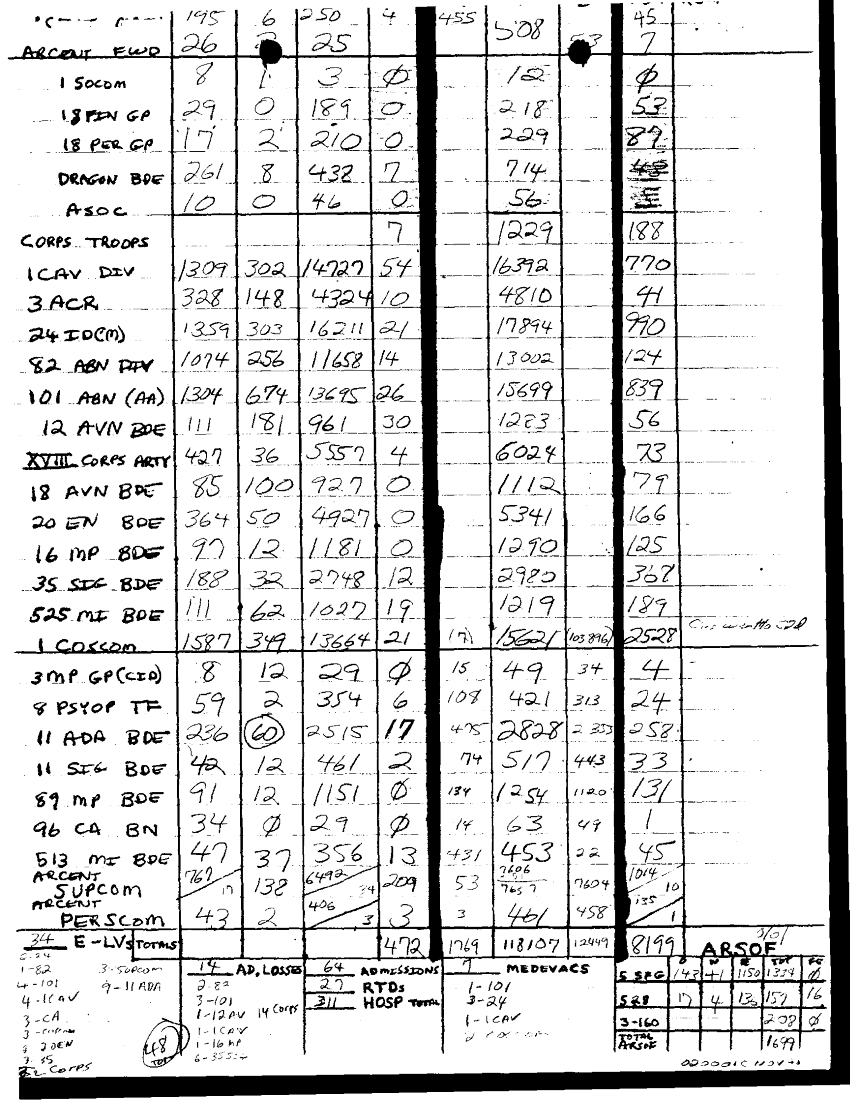 195 6 250 4 455 508 45
ARCENT FWD 26 25 53 7
1 SOCOM 8 1 3 Ø 12 Ø
18 FIN GP 29 0 189 0 218 53
18 PER GP 17 2 210 0 229 87
DRAGON BDE 261 8 438 7 714
ASOC 10 0 46 0 56
CORPS TROOPS 7 1229 188
1 CAV DIV 1309 302 14727 54 16392 770
3 ACR 328 148 4324 10 4810 41
24 ID(M) 1359 303 16211 21 17894 990
82 ABN DIV 1074 256 11658 14 13002 124
101 ABN (AA) 1304 674 13695 26 15699 839
12 AVN BDE 111 181 961 30 1283 56
XVIII CORPS ARTY 427 36 5557 4 6024 73
18 AVN BDE 85 100 927 0 1112 79
20 EN BDE 364 50 4927 0 5341 166
16 MP BDE 97 12 1181 0 1290 125
35 SIG BDE 188 32 2748 12 2980 368
525 MI BDE 111 62 1027 19 1219 189
1 COSCOM 1587 349 13664 21 171 15621 (103896) 2528
3 MP GP (CID) 8 12 29 Ø 15 49 34 4
8 PSYOP TF 59 2 354 6 108 421 313 24
11 ADA BDE 236 60 2515 17 475 2828 2353 258
11 SIG BDE 42 12 461 2 74 517 443 33
89 MP BDE 91 12 1151 Ø 134 1254 1120 131
96 CA BN 34 Ø 29 Ø 14 63 49 1
513 MI BDE 47 37 356 13 431 453 22 45
ARCENT SUPCOM 767 17 138 6492 34 209 53 7606 7657 7604 1014 10
ARCENT PERSCOM 43 2 406 3 3 3 461 458 135 1
34 E-LVs TOTALS 472 1769 118107 12449 8199 ARSOF
14 AD. LOSSES 64 ADMISSIONS 7 MEDEVACS
27 RTDs
311 HOSP TOTAL
1-82 3-SOPCOM
4-101 9-11ADA
4-1CAV
3-CA
2OEN
CORPS
48 TOT
2-82
3-101
1-12AV 14 Corps
1-1CAV
1-16MP
1-101
3-24
1-1CAV
5 SFG 143 41 1150 1334 Ø
528 17 4 136 157 16
3-160 208 Ø
TOTAL ARSOF 1699